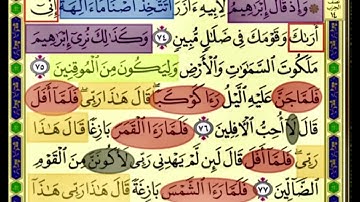 وَإِذْ قَالَ إِبْرَٰهِيمُ لِأَبِيهِ ءَازَرَ أَتَتَّخِذُ أَصْنَامًا ءَالِهَةً إِنِّىٓ
أَرَىٰكَ وَقَوْمَكَ فِى ضَلَٰلٍ مُّبِينٍ ٧٤ وَكَذَٰلِكَ نُرِىٓ إِبْرَٰهِيمَ
مَلَكُوتَ ٱلسَّمَٰوَٰتِ وَٱلْأَرْضِ وَلِيَكُونَ مِنَ ٱلْمُوقِنِينَ ٧٥
فَلَمَّا جَنَّ عَلَيْهِ ٱلَّيْلُ رَءَا كَوْكَبًا قَالَ هَٰذَا رَبِّى فَلَمَّآ أَفَلَ
قَالَ لَآ أُحِبُّ ٱلْءَافِلِينَ ٧٦ فَلَمَّا رَءَا ٱلْقَمَرَ بَازِغًا قَالَ هَٰذَا
رَبِّى فَلَمَّآ أَفَلَ قَالَ لَئِن لَّمْ يَهْدِنِى رَبِّى لَأَكُونَنَّ مِنَ ٱلْقَوْمِ
ٱلضَّآلِّينَ ٧٧ فَلَمَّا رَءَا ٱلشَّمْسَ بَازِغَةً قَالَ هَٰذَا رَبِّى هَٰذَآ